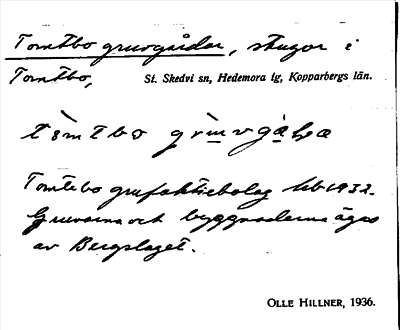 Tomtbo gruvgårdar, stugor i
Tomtbo, St. Skedvi sn, Hedemora lg, Kopparbergs län.
Tomtebo grufaktiebolag 1932.
Gruvorna och byggnaderna ägas
av Bergslaget.
OLLE HILLNER, 1936.